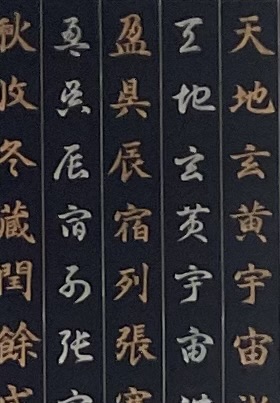 天地玄黄宇宙
天地玄黄宇宙
盈昃辰宿列張寒
盈昃辰宿列張
秋收冬藏閏餘成